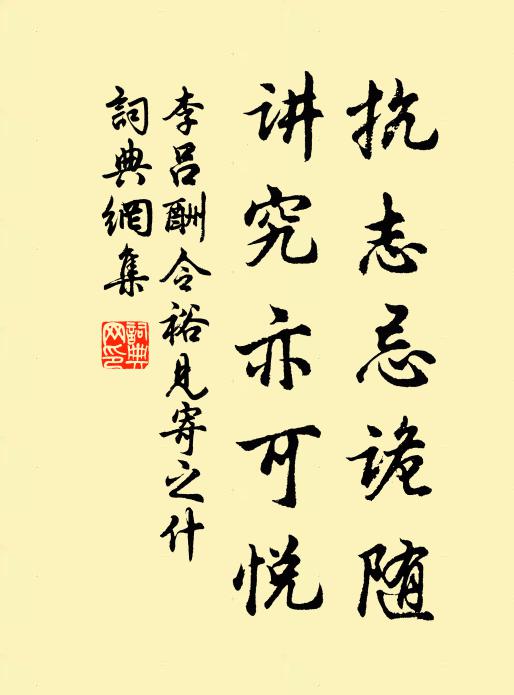 抗志忌诡随
讲究亦可悦
李吕酬令裕见寄之什
詞典網集
詞典
网印